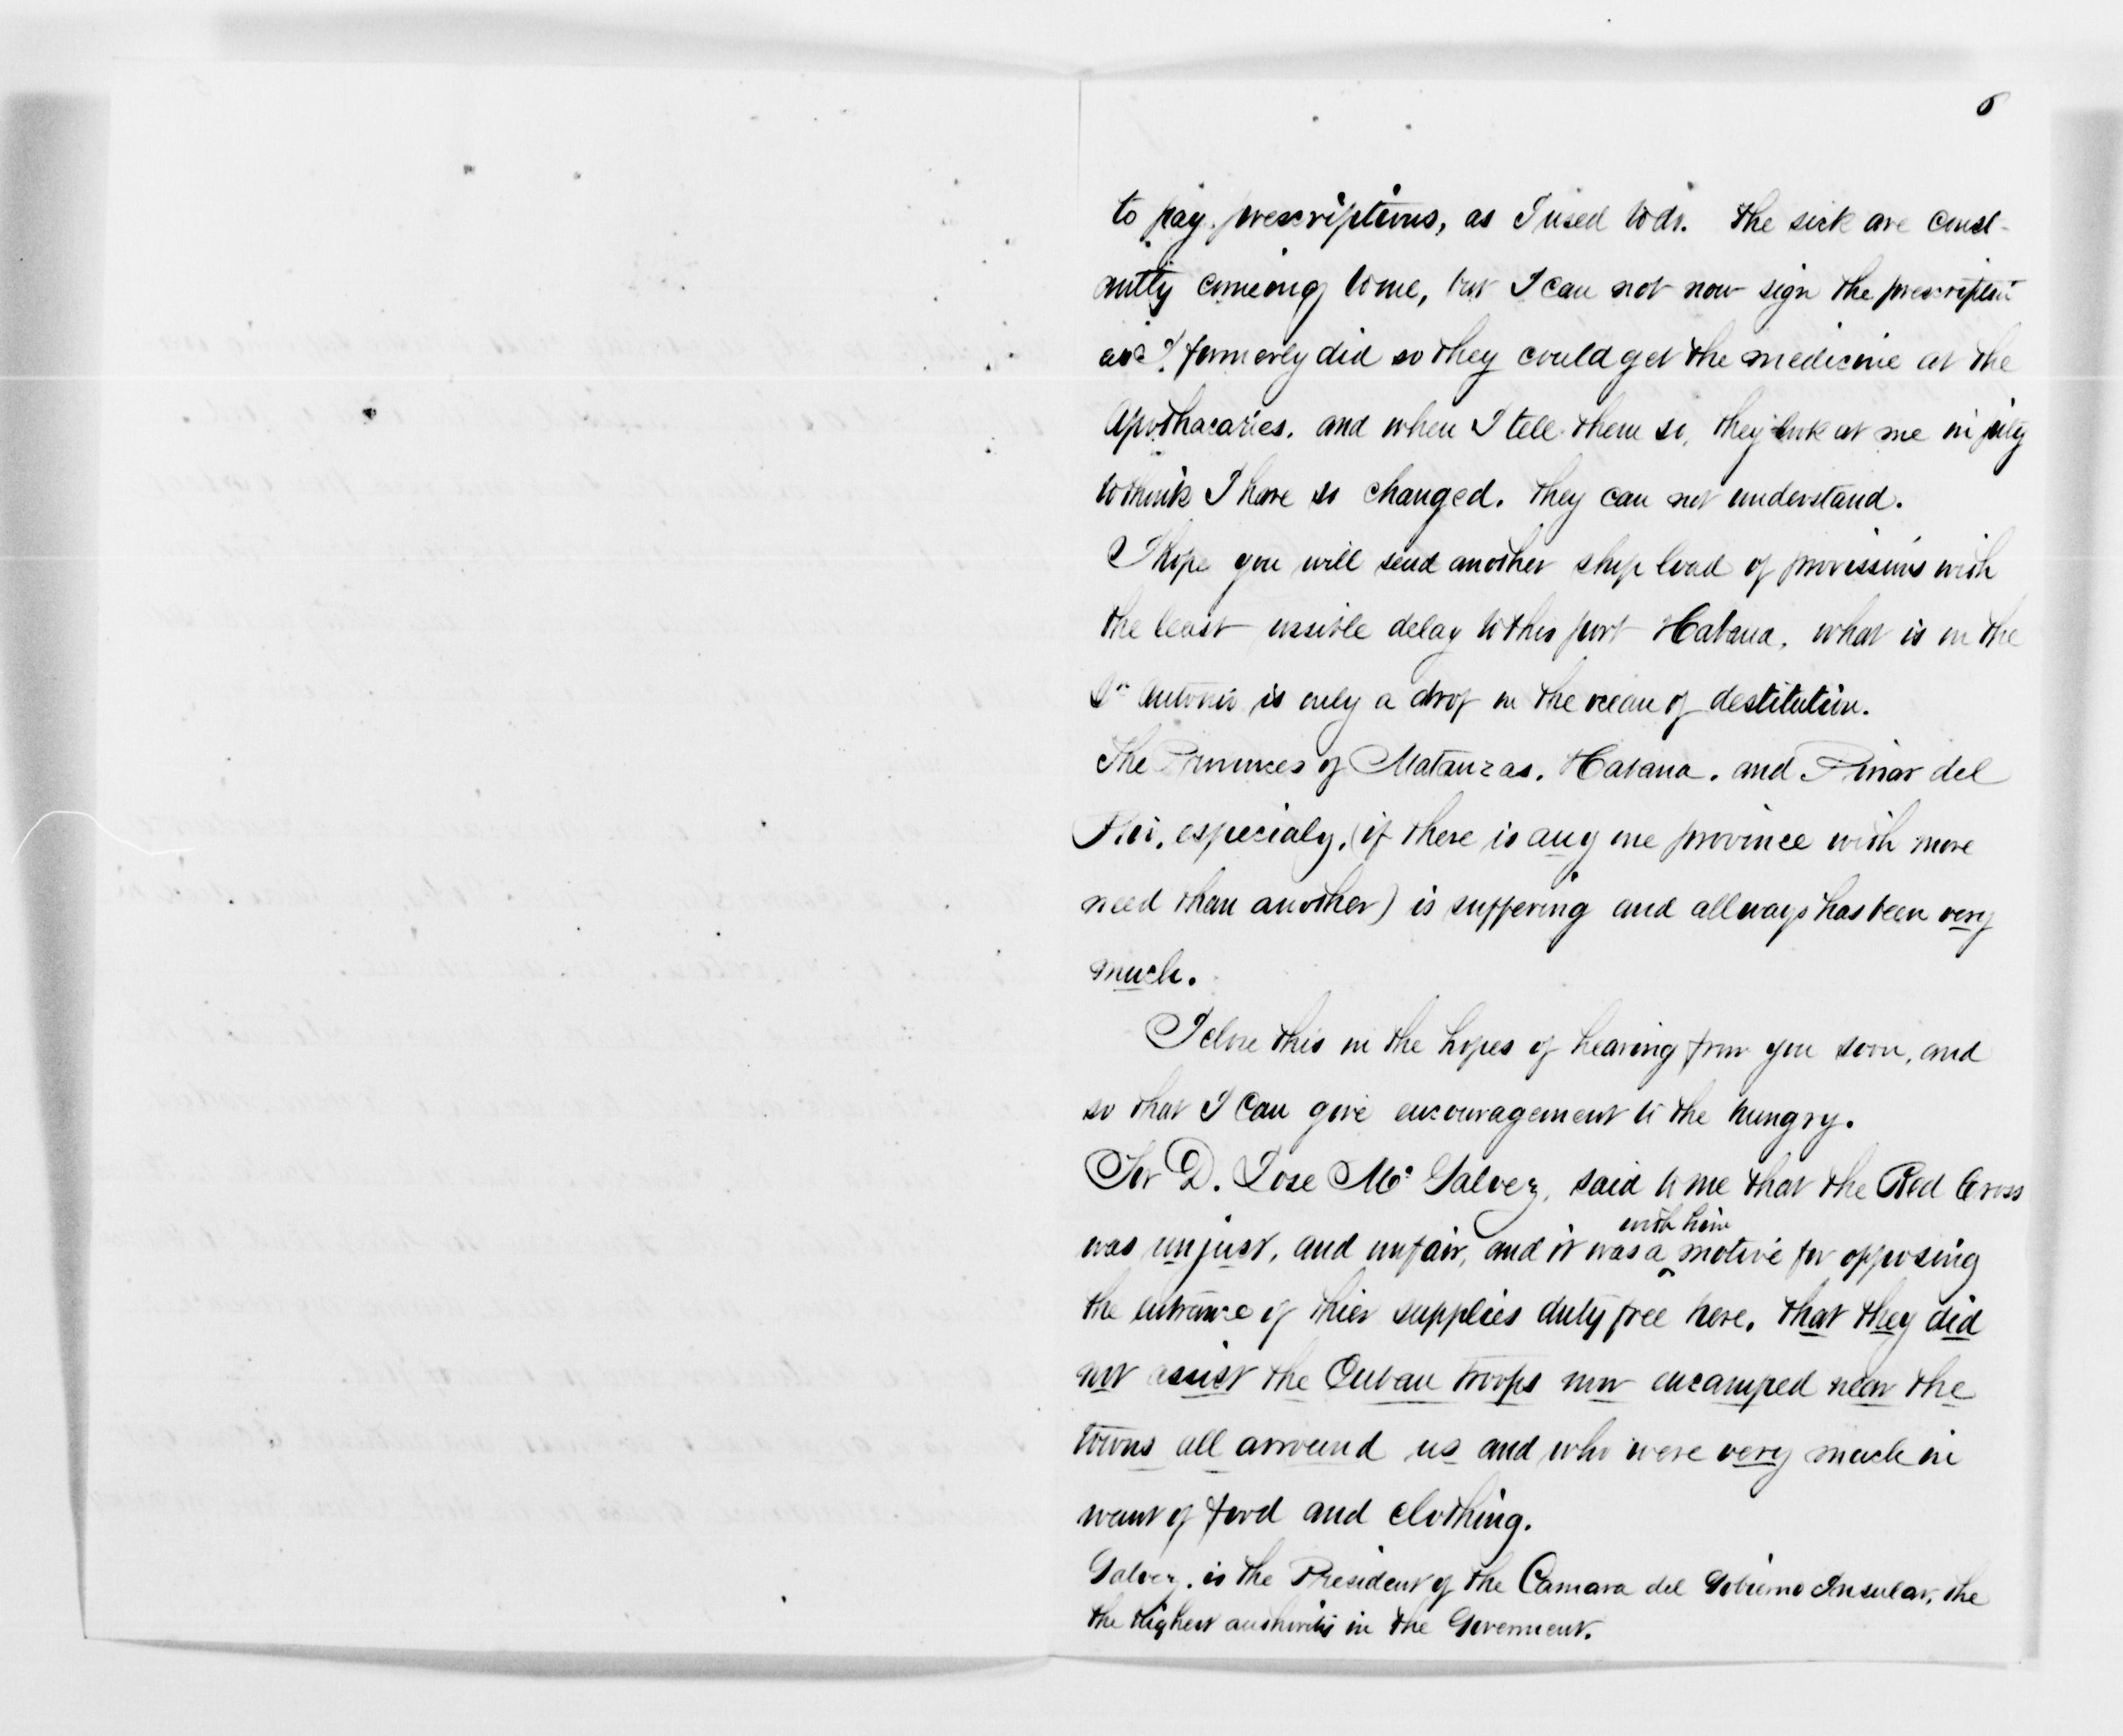 6
to pay prescriptions, as I used to do. The sick are const-
antly comeing to me, but I can not now sign the prescription
as I formerly did so they could get the medicine at the
Apothacaries. and when I tell them so, they look at me in pity
to think I have so changed. They can not understand.
I hope you will send another ship load of provissions with
the least possible delay to this port Habana. what is in the
Sn Antonio is only a drop in the ocean of destitution.
The Provinces of Matanzas. Habana. and Pinar del
Rio, especialy, (if there is any one province with more
need than another) is suffering and allways has been very
much.
I close this in the hopes of hearing from you soon, and
so that I can give encouragement to the hungry.
Sor D. Jose Ma Galvez, said to me that the Red Cross
with him
was unjust, and unfair, and it was a motive for opposing
the entrance of thier supplies duty free here. that they did
not assist the Cuban troops now encamped near the
towns all arround us and who were very much in
want of food and clothing.
Galvez. is the President of the Camara del Gobierno Insular, the
the highest authority in the Goverment.